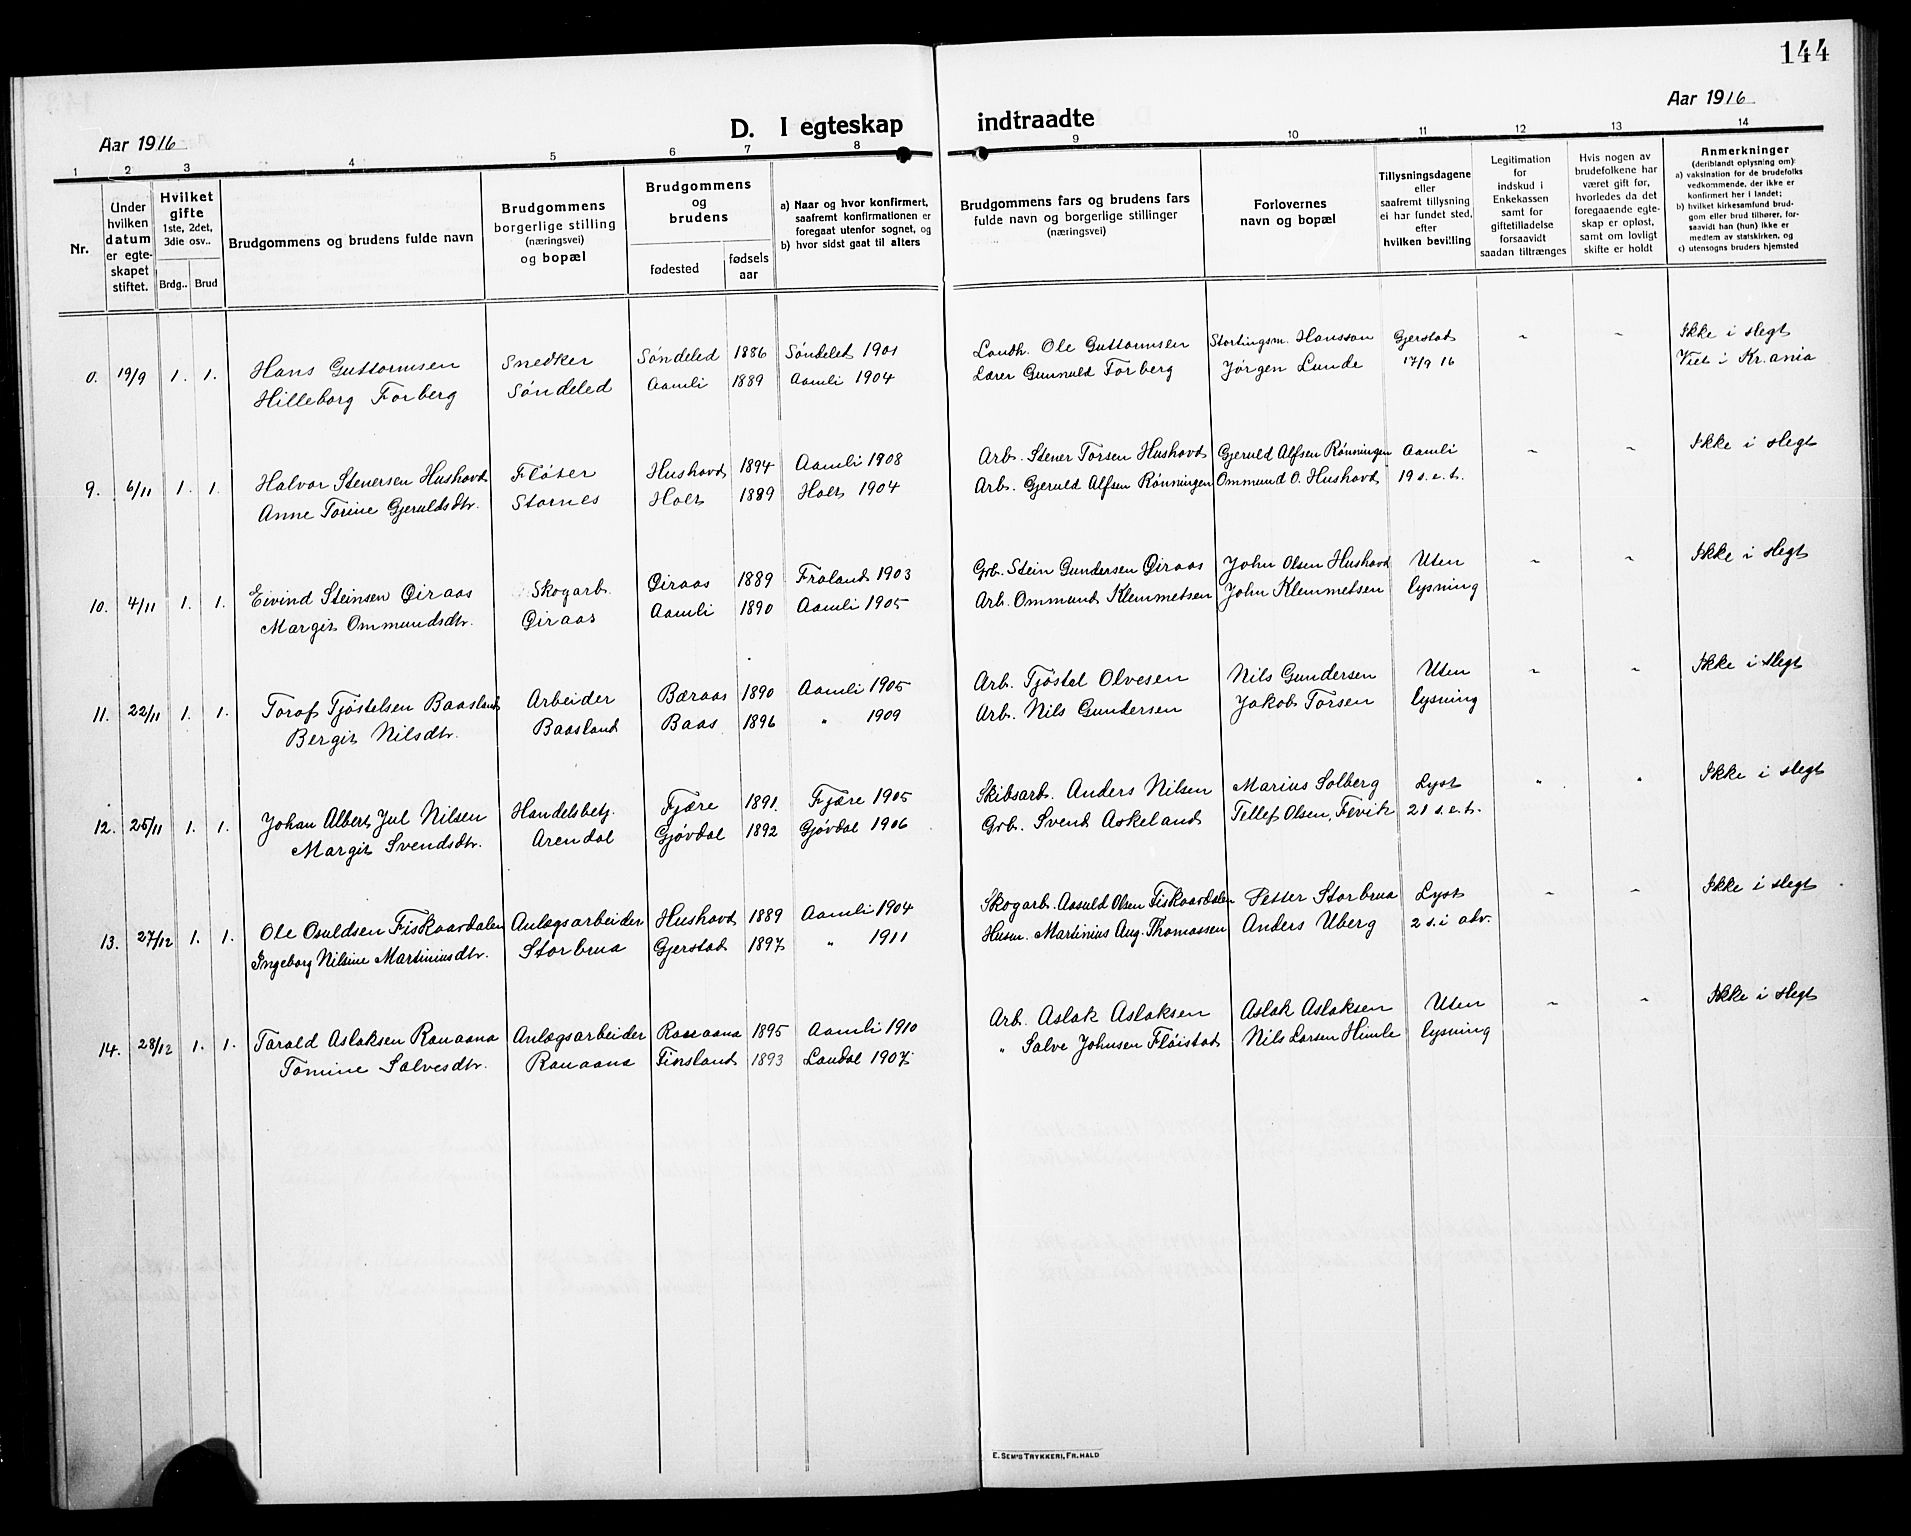 144
Aar 1916
D. I egteskap indtraadte
Aar 1916
1 2 3 4 5 6 7 8 9 10 11 12 13 14
Nr.
Under hvilken datum er egte-skapet stiftet.
Hvilket gifte 1ste, 2det, 3die osv..
Brdg.. Brud
Brudgommens og brudens fulde navn
Brudgommens borgerlige stilling (næringsvei) og bopæl
Brudgommens og brudens
fødested
fødsels aar
a) Naar og hvor konfirmert, saafremt konfirmationen er foregaat utenfor sognet, og
b) hvor sidst gaat til alters
Brudgommens fars og brudens fars fulde navn og borgerlige stillinger (næringsvei)
Forlovernes navn og bopæl
Tillysningsdagene eller saafremt tillysning ei har fundet sted, efter hvilken bevilling
Legitimation for indskud i Enkekassen samt for giftetilladelse forsaavidt saadan tiltrænges
Hvis nogen av brudefolkene har været gift før, hvorledes da det foregaaende egte-skap er opløst, samt om lovligt skifte er holdt
Anmerkninger (deriblandt oplysning om):
a) vaksination for de brudefolks vedkommende, der ikke er konfirmert her i landet;
b) hvilket kirkesamfund brud-gom eller brud tilhører, for-saavidt han (hun) ikke er medlem av statskirken, og
c) utensogns bruders hjemsted
0. 19/9 1. 1. Hans Guttormsen Snedker Søndeled 1886 Søndeled 1901 Landh. Ole Guttormsen Stortingsm. Hansson Gjerstad " " Ikke i slegt
Hilleborg Forberg Søndeled Aamli 1889 Aamli 1904 Lærer Gunnuld Forberg Jørgen Lunde 17/9 16 Viet i Kr.ania
9. 6/11 1. 1. Halvor Stenersen Hushovd Fløter Hushovd 1894 Aamli 1908 Arb. Stener Torsen Hushovd Gjeruld Alfsen Rønningen Aamli " " Ikke i slegt
Anne Torine Gjeruldsdtr. Stornes Holt 1889 Holt 1904 Arb. Gjeruld Alfsen Rønningen Ommund O. Hushovd 19 s.e.t.
10. 4/11 1. 1. Eivind Steinsen Øiraas Skogarb. Øiraas 1889 Froland 1903 Grb. Stein Gundersen Øiraas John Olsen Hushovd Uten " " Ikke i slegt
Margit Ommundsdtr. Øiraas Aamli 1890 Aamli 1905 Arb. Ommund Klemmetsen John Klemmetsen lysning
11. 22/11 1. 1. Torof Tjøstelsen Baasland Arbeider Bæraas 1890 Aamli 1905 Arb. Tjøstel Olvesen Nils Gundersen Uten " " Ikke i slegt
Bergit Nilsdtr. Baasland Baas 1896 " 1909 Arb. Nils Gundersen Jakob Torsen lysning
12. 25/11 1. 1. Johan Albert Jul Nilsen Handelsbetj. Fjære 1891. Fjære 1905 Skibsarb. Anders Nilsen Marius Solberg Lyst " " Ikke i slegt
Margit Svendsdtr. Arendal Gjøvdal 1892 Gjøvdal 1906 Grb. Svend Askeland Tellef Olsen, Fevik 21 s.e.t.
13. 27/12 1. 1. Ole Osuldsen Fiskaardalen Anlægsarbeider Hushovd 1889 Aamli 1904 Skogarb. Aasuld Olsen Fiskaardalen Petter Storbrua Lyst " " Ikke i slegt
Ingeborg Nilsine Martiniusdtr. Storbrua Gjerstad 1897 " 1911 Husm. Martinius Aug. Thomassen Anders Uberg 2 s. i adv.
14. 28/12 1. 1. Tarald Aslaksen Ranaana Anlægsarbeider Ranaana 1895 Aamli 1910 Arb. Aslak Aslaksen Aslak Aslaksen Uten " " Ikke i slegt
Tomine Salvesdtr. Ranaana Finsland 1893 Laudal 1907 " Salve Johnsen Fløistad Nils Larsen Himle lysning
E. SEM'S TRYKKERI, FR.HALD